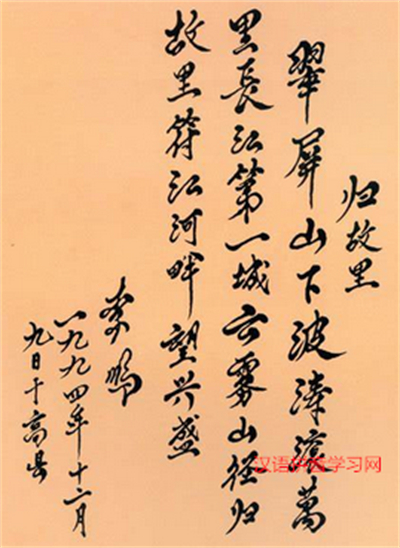 归故里
翠屏山下波涛滚萬
里長江第一城云雾山径归
故里符江河畔望兴盛
李鹏
一九九四年十二月
九日于高县
汉语拼音学习网